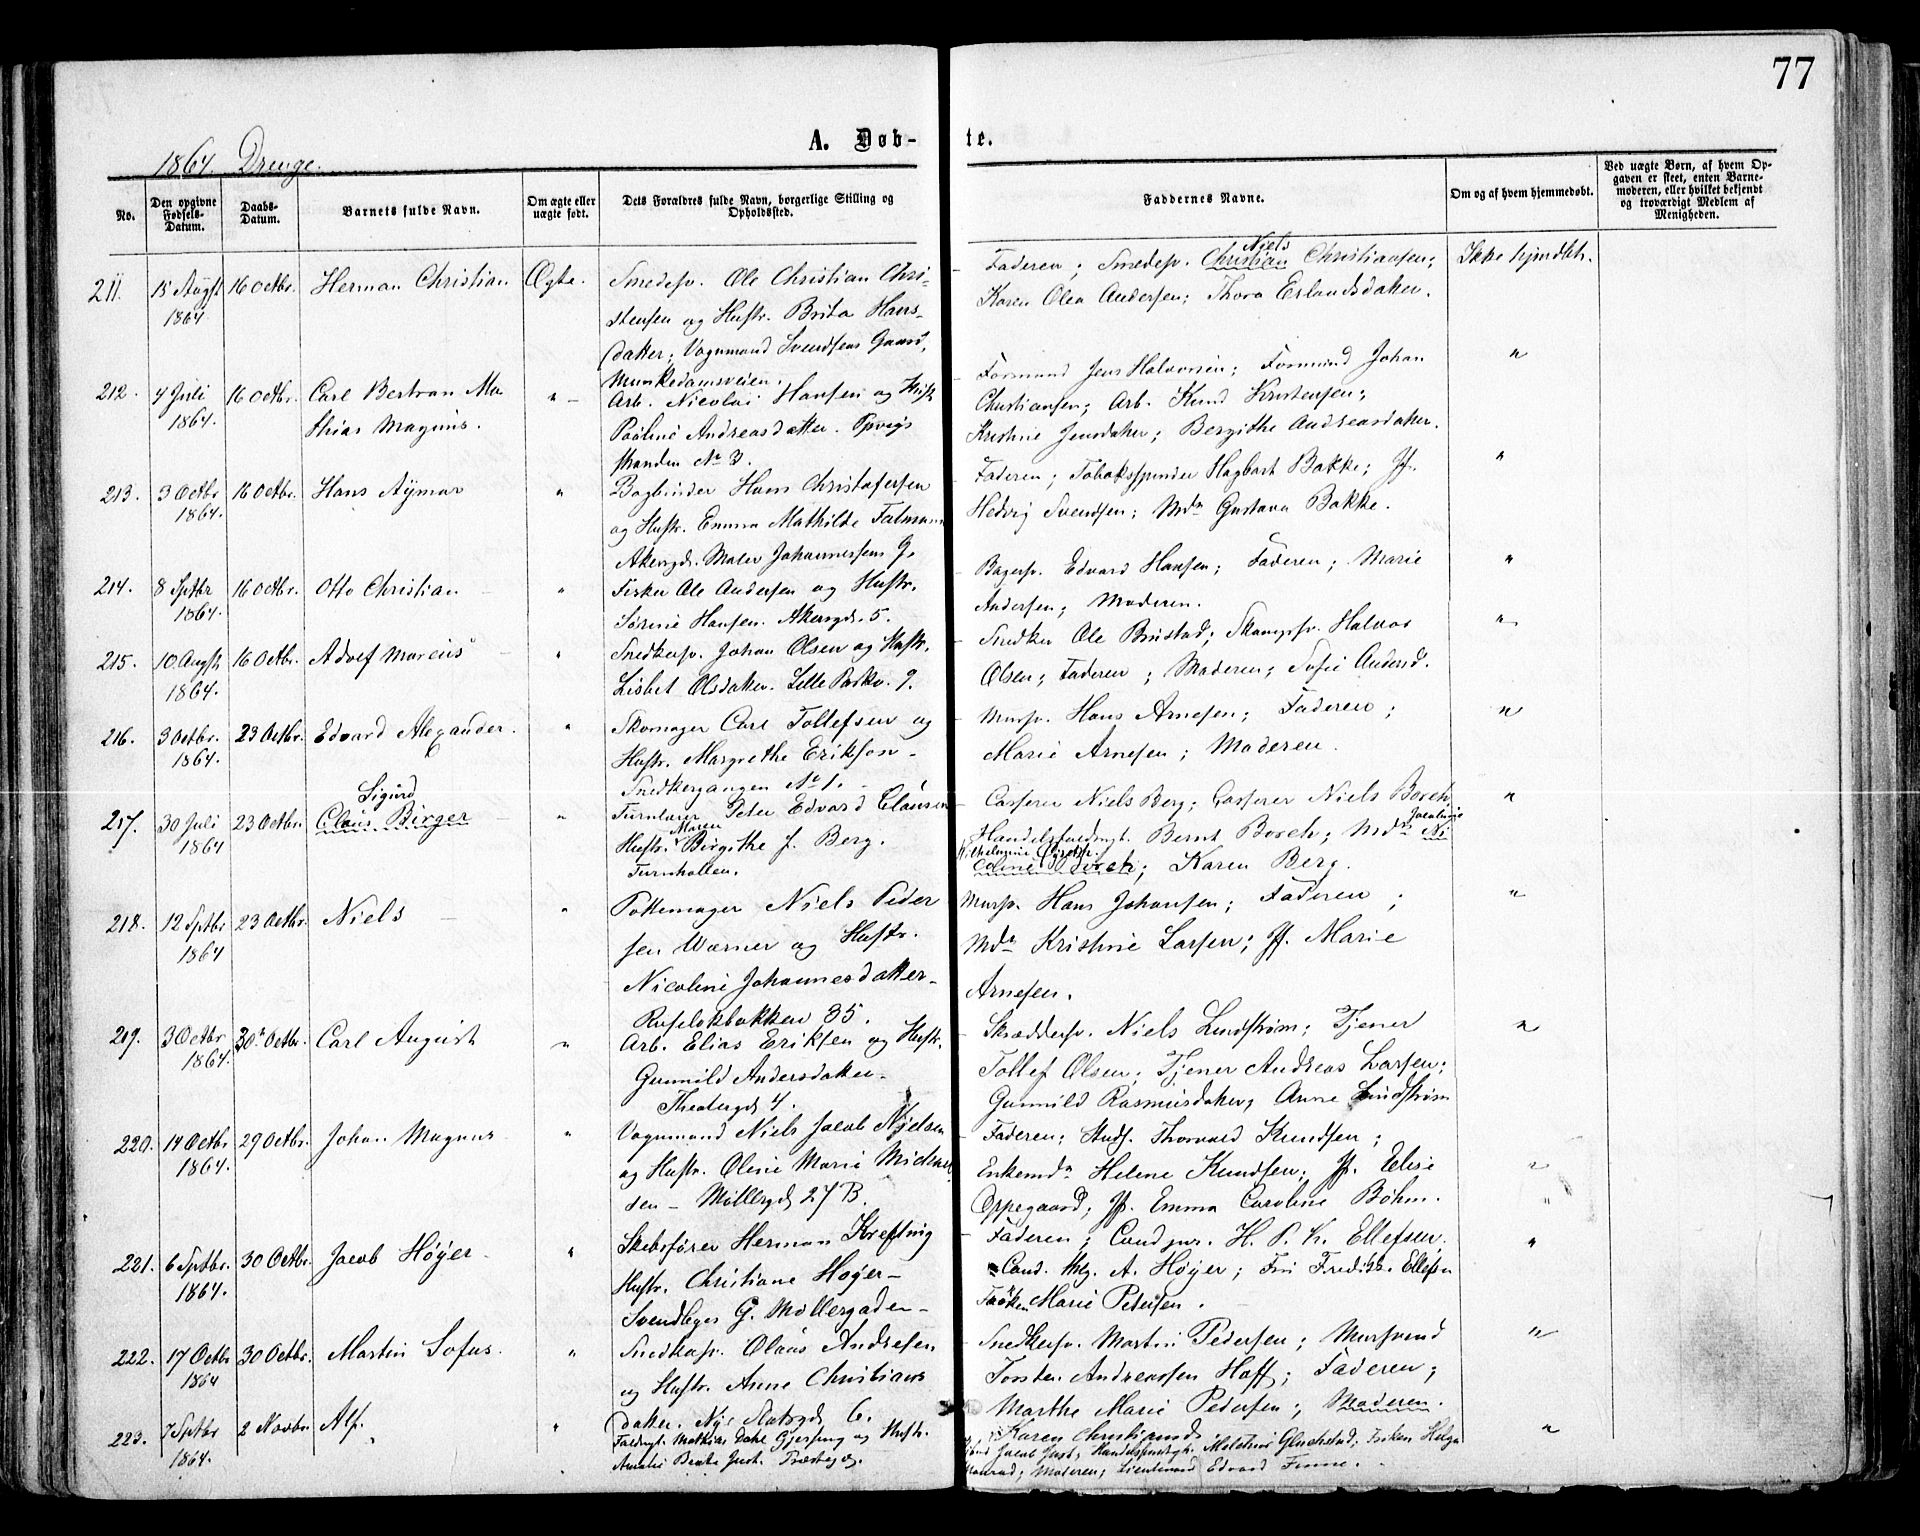 77
A. Døb- te.
1864. Drenge.
No.
Den opgivne Fødsels-Datum.
Daabs-Datum.
Barnets fulde Navn.
Om ægte eller uægte født.
Dets Forældres fulde Navn, borgerlige Stilling og Opholdssted.
Faddernes Navne.
Om og af hvem hjemmedøbt.
Ved uægte Børn, af hvem Opgaven er skeet, enten Barnemoderen, eller hvilket bekjendt og troværdigt Medlem af Menigheden.
211. 15 Augst 1864 16 Octbr. Herman Christian Ægte.
Smedesv. Ole Christian Chri-
stensen og Hustr. Brita Hans-
datter; Vognmand Svendsens Gaard,
Munkedamsveien.
Faderen; Smedesv. Christian Niels Christiansen;
Karen Olea Andersen; Thora Erlandsdatter.
Ikke hjmdbt.
212. 4 Juli 1864. 16 Octbr. Carl Bertran Ma-
thias Magnus. " –
Arb. Nicolai Hansen og Hustr.
Pauline Andreasdatter. Pipvigs
stranden No 3.
Formand Jens Halvorsen; Formand Johan
Christiansen; Arb. Knud Kristensen;
Kristine Jensdatter; Bergithe Andreasdatter.
"
213. 3 Octbr 1864. 16 Octbr. Hans Aymar "
Bogbinder Hans Christofersen
og Hustr. Emma Mathilde
Akersgd. Maler Johannessens G.
Faderen; Tobaksspinder Hagbart Bakke; Jf.
Hedvig Svendsen; Mdm Gustava Bakke.
"
214. 8 Sptbr 1864. 16 Octbr. Otto Christian "
Fisker Ole Andersen og Hustr.
Sørine Hansen. Akersgd. 5.
Bagersv. Edvard Hansen; Faderen; Marie
Andersen; Moderen.
"
215. 10 Augst 1864. 16 Octbr. Adolf Marcus "
Snedkersv. Johan Olsen og Hustr.
Lisbet Olsdatter. Lille Parkv. 9.
Snedker Ole Brustad; Skompsv. Halvor
Olsen; Faderen; Moderen; Sofie Andersd.
"
216. 3 Octbr. 1864. 23 Octbr. Edvard Alexander. "
Skomager Carl Tollefsen og
Hustr. Margrethe Erikson –
Snedkergangen No 1.
Mursv. Hans Arnesen; Faderen;
Marie Arnesen; Moderen.
"
217. 30 Juli 1864 23 Octbr. Sigurd
Claus Birger "
Turnlærer Peter Edvard Clausen
Hustr. Maren Birgithe f. Berg.
Turnhallen.
Casserer Niels Berg; Casserer Niels Borch
Handelsfuldmgt. Bernt Borch; Mdm Jacobine Ni
Wilhelmine
coline Borch; Karen Berg.
"
218. 12 Sptbr 1864 23 Octbr. Niels "
Pottemager Niels Peder
sen Warner og Hustr.
Nicoline Johannesdatter –
Rufseløkbakken 35.
Mursv. Hans Johansen; Faderen;
Mdm Kristine Larsen; Jf. Marie
Arnesen.
"
219. 3 Octbr 1864. 30 Octbr. Carl August "
Arb. Elias Eriksen og Hustr.
Gunnild Andersdatter.
Theatergd 4.
Skræddersv. Niels Lundstrøm; Tjener
Tollef Olsen; Tjener Andreas Larsen;
Gunnild Rasmusdatter, Anne Lindstrøm
"
220. 14 Octbr 1864. 29 Octbr. Johan Magnus "
Vognmand Niels Jacob Nielsen
og Hustr. Oline Marie Michel
sen – Møllergd 27 B.
Faderen; Studs. Thorvald Knudsen;
Enkemdm Helene Knudsen; Jf. Elise
Oppegaard; Jf. Emma Caroline Bøhm.
"
221. 6 Sptbr. 1864. 30 Octbr. Jacob Høyer. "
Skibsfører Herman Krefting
Hustr. Christiane Høyer –
Svendbyes G. Møllergaden –
Faderen; Cand jur. H. P. K. Ellefsen;
Cand. theg. A. Høyer; Fru Fredikke Ellefsen
Frøken Marie Petersen.
"
222. 17 Octbr 1864 30 Octbr. Martin Sofus. "
Snedkersv. Olaus Andresen
og Hustr. Anne Christians
datter. Nye Slotsgd 6.
Snedkersv. Martin Pedersen; Mursvend
Torsten Andreassen Hoff; Faderen;
Marthe Marie Pedersen; Moderen.
Karen Christiansd
"
223. 7 Sptbr 1864. 2 Novbr. Alf. "
Fuldmgt. Mathias Dahl Gjersing og Hustr.
Amalie Beate Just.
Jacob Just; Mathine Gluckstad; Frøken Helga
Moderen; Lieutenand Edvard Finne.
"